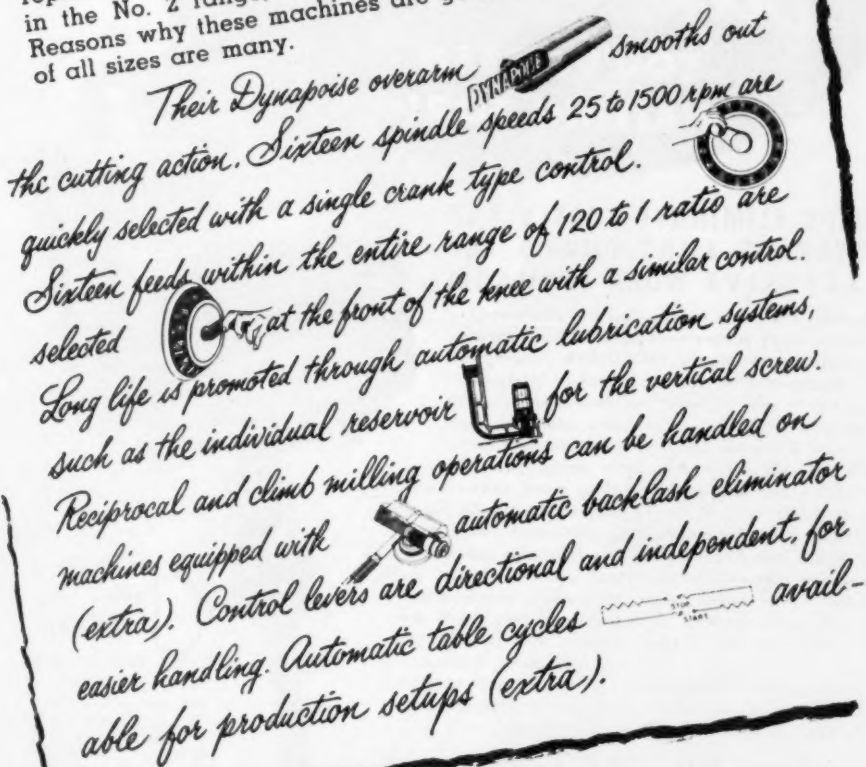 in the No. 2
Reasons why these machines are
of all sizes are many.
Their Dynapoise overarm DYNAPOISE smooths out
the cutting action. Sixteen spindle speeds 25 to 1500 rpm are
quickly selected with a single crank type control.
Sixteen feeds within the entire range of 120 to 1 ratio are
selected at the front of the knee with a similar control.
Long life is promoted through automatic lubrication systems,
such as the individual reservoir for the vertical screw.
Reciprocal and climb milling operations can be handled on
machines equipped with automatic backlash eliminator
(extra). Control levers are directional and independent, for
easier handling. Automatic table cycles STOP START avail-
able for production setups (extra).